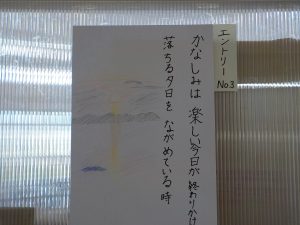 エントリー
No3
かなしみは 楽しい今日が 終わりかけ
落ちる夕日を ながめている時